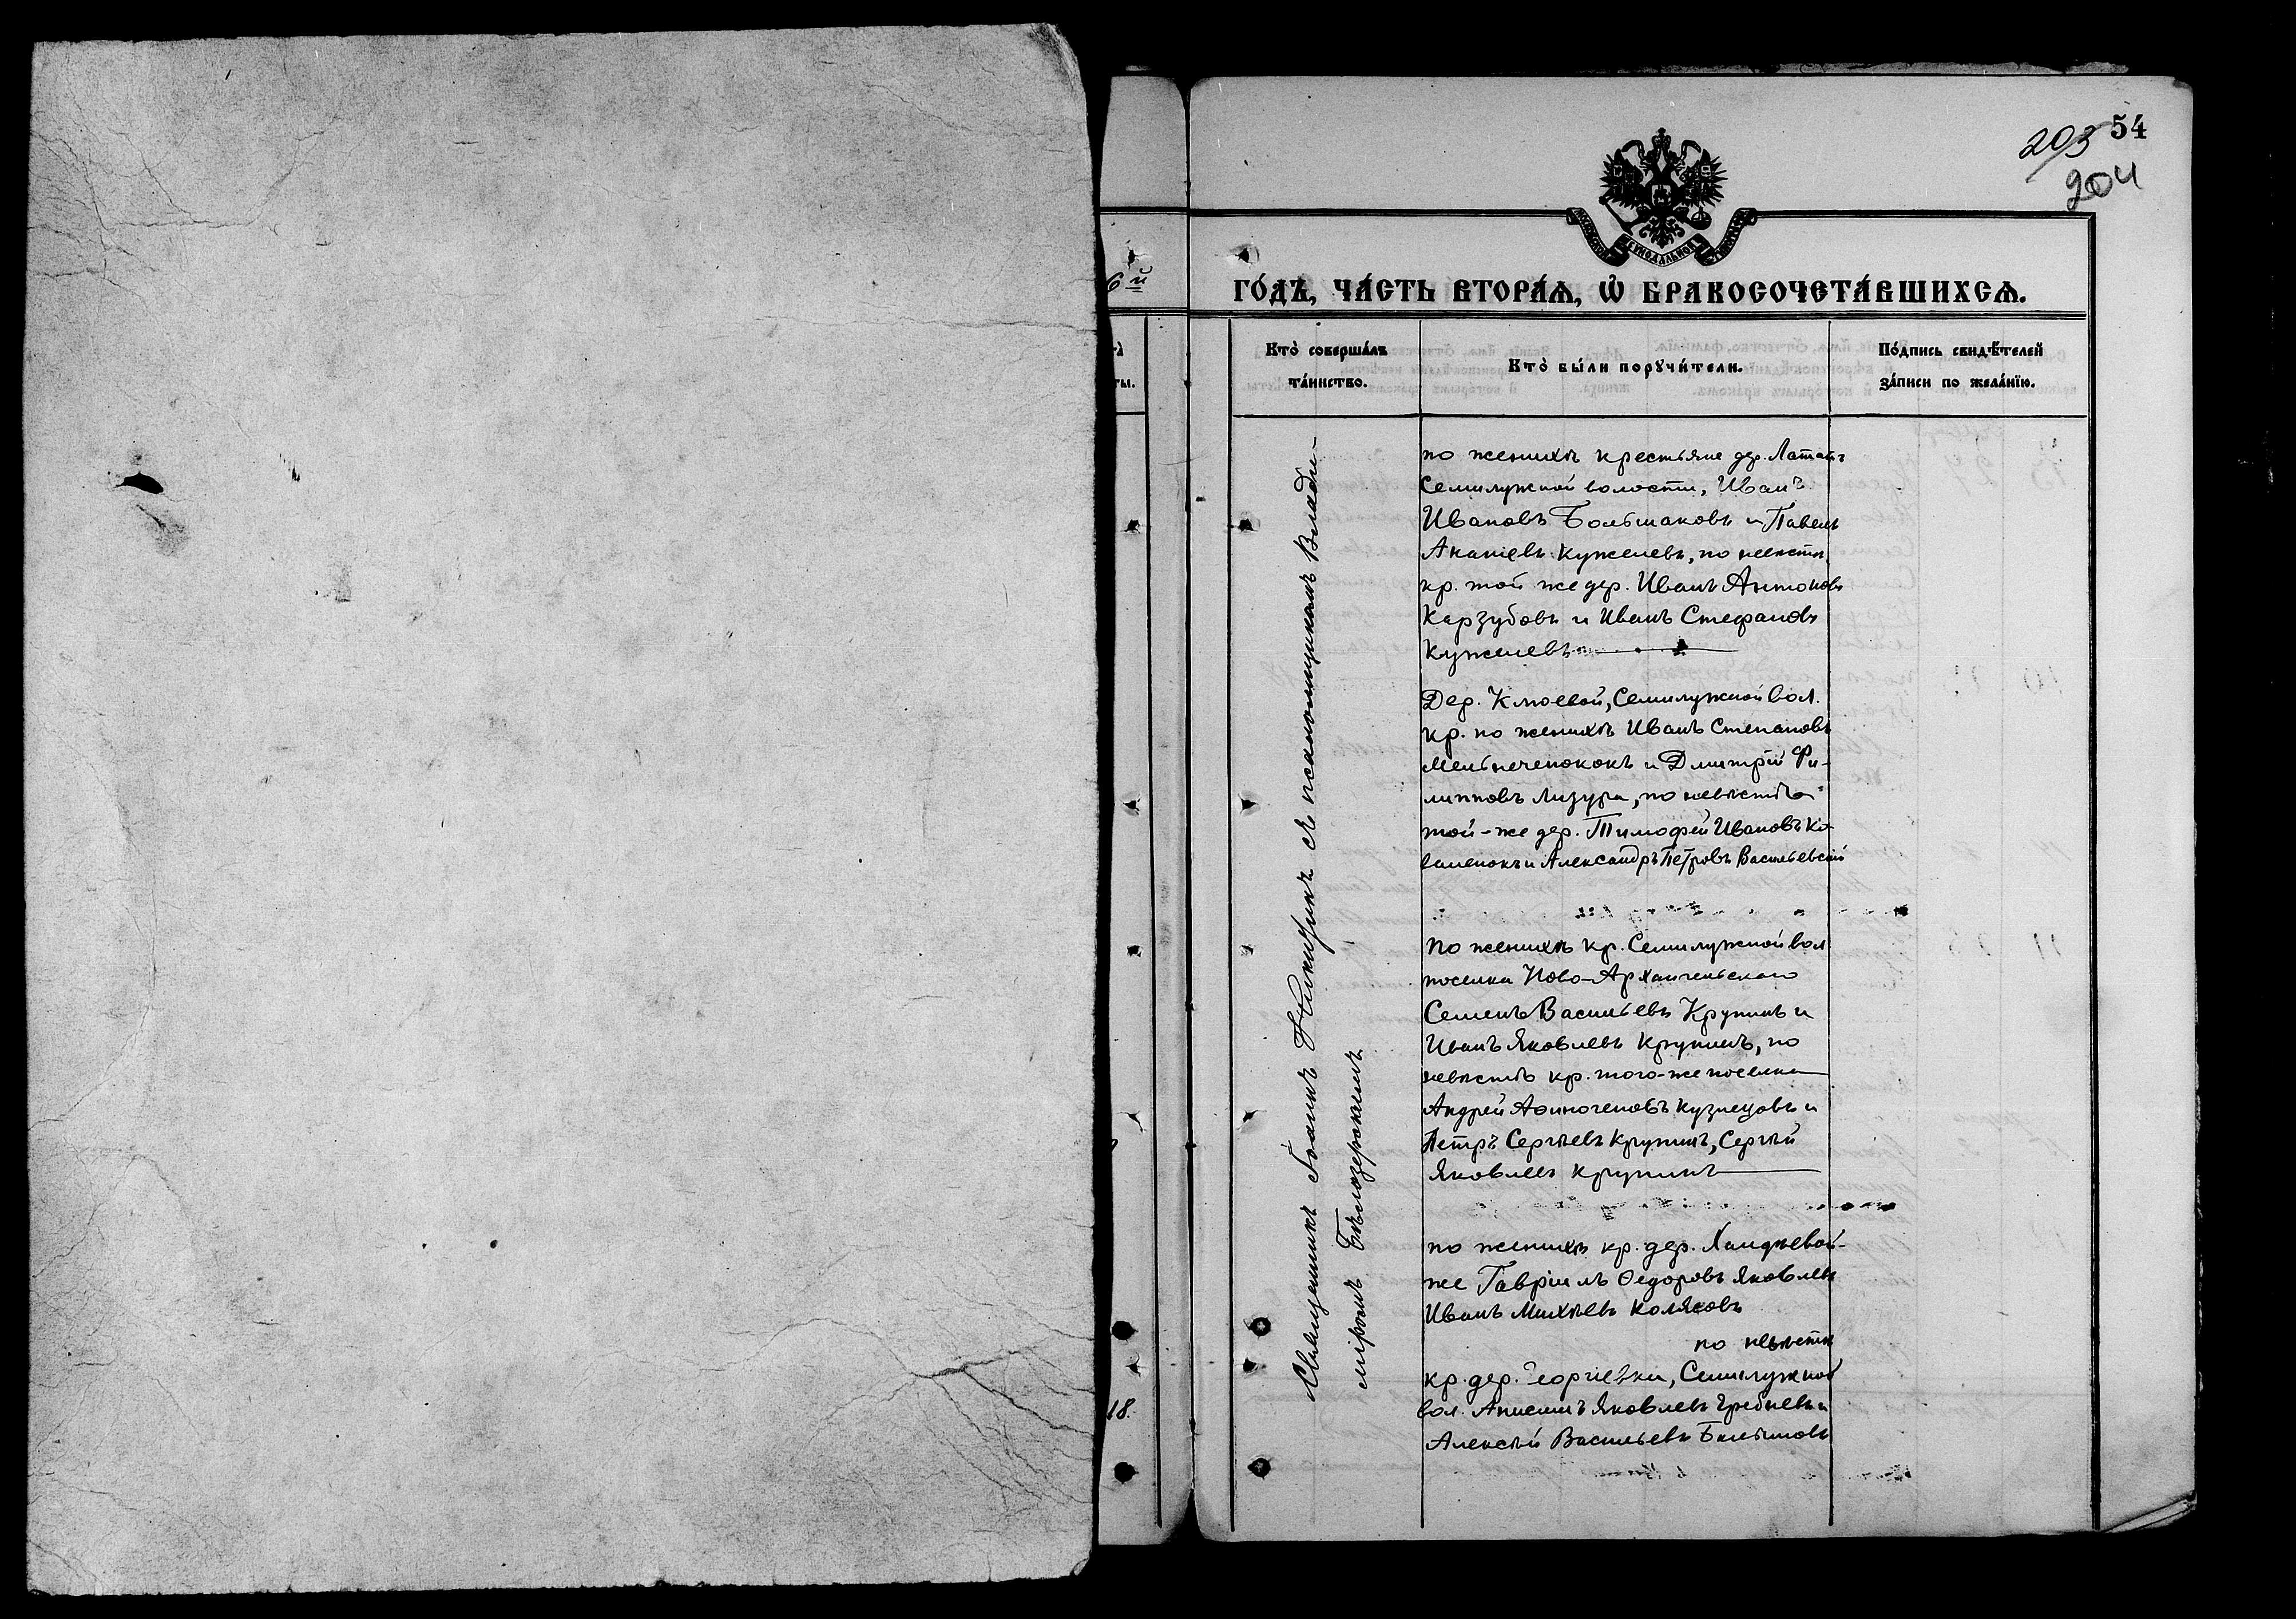 54
203
204
6й
ГО́ДѢ, ЧА́СТЬ ВТОРА́Ѧ, Ѿ БРАКОСОЧЕТА́ВШИХСѦ.
Кто̀ соверша́лъ
та́инство.
Кто̀ бы́ли порꙋчи́тели.
По́дпись свидѣ́телей
за́писи по жела́нїю.
ты.
18.
Священникъ Іоаннъ Никицинъ съ псаломщикомъ Влади-
міромъ Бѣлозерскимъ
по женихѣ крестьяне дер. Лататъ
Семилужной волости, Иванъ
Ивановъ Большаковъ и Павелъ
Ананіевъ Кужелевъ, по невѣстѣ
кр. той же дер. Иванъ Антоновъ
Карзубовъ и Иванъ Стефановъ
Кужелевъ
Дер. Клюевой, Семилужной вол.
кр. по женихѣ Иванъ Степановъ
Мельнеченокъ и Дмитрій Фи-
липповъ Лизура, по невѣстѣ
той-же дер. Тимофей Ивановъ Ко-
валенокъ и Александръ Петровъ Васильевскій
По женихѣ кр. Семилужной вол
поселка Ново-Архангельскаго
Семенъ Васильевъ Крупинъ и
Иванъ Яковлевъ Крупинъ, по
невѣстѣ кр. того-же поселка
Андрей Афиногеновъ Кузнецовъ и
Петръ Сергѣевъ Крупинъ, Сергѣй
Яковлевъ Крупинъ
по женихѣ кр. дер. Халдѣевой-
же Гавріилъ Ѳедоровъ Яковлевъ
Иванъ Михѣевъ Колясовъ
по невѣстѣ
кр. дер. Георгіевки, Семилужной
вол. Анисимъ Яковлевъ Гребневъ и
Алексѣй Васильевъ